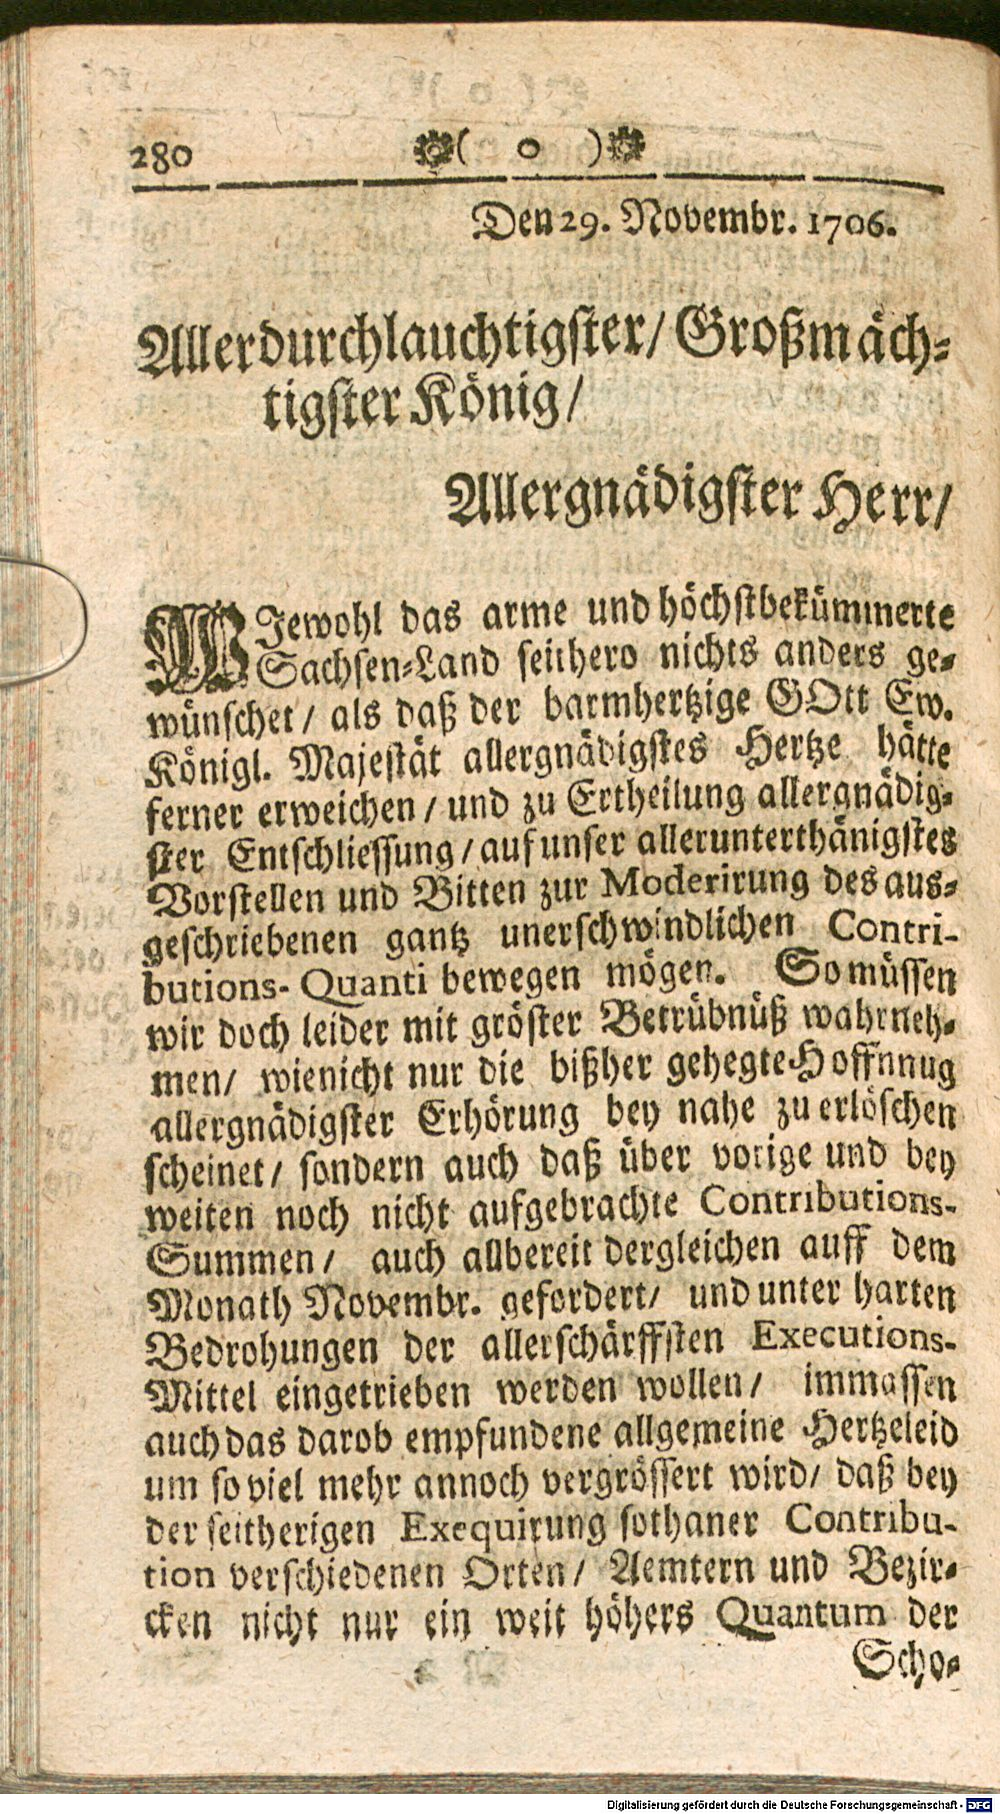 280 ( o )
Den 29. Novembr. 1706.
Allerdurchlauchtigster/ Großmäch-
tigster König/
Allergnädigster Herr/
WJewohl das arme und höchstbekümmerte
Sachsen-Land seithero nichts anders ge-
wünschet/ als daß der barmhertzige GOtt Ew.
Königl. Majestät allergnädigstes Hertze hätte
ferner erweichen/ und zu Ertheilung allergnädig-
ster Entschliessung/ auf unser allerunterthänigstes
Vorstellen und Bitten zur Moderirung des aus-
geschriebenen gantz unerschwindlichen Contri-
butions-Quanti bewegen mögen. So müssen
wir doch leider mit gröster Betrübnüß wahrneh-
men/ wienicht nur die bißher gehegte Hoffnnug
allergnädigster Erhörung bey nahe zu erlöschen
scheinet/ sondern auch daß über vorige und bey
weiten noch nicht aufgebrachte Contributions-
Summen/ auch allbereit dergleichen auff dem
Monath Novembr. gefordert/ und unter harten
Bedrohungen der allerschärffsten Executions-
Mittel eingetrieben werden wollen/ immassen
auch das darob empfundene allgemeine Hertzeleid
um so viel mehr annoch vergrössert wird/ daß bey
der seitherigen Exequirung sothaner Contribu-
tion verschiedenen Orten/ Aemtern und Bezir-
cken nicht nur ein weit höhers Quantum der
Scho-
Digitalisierung gefördert durch die Deutsche Forschungsgemeinschaft - DFG